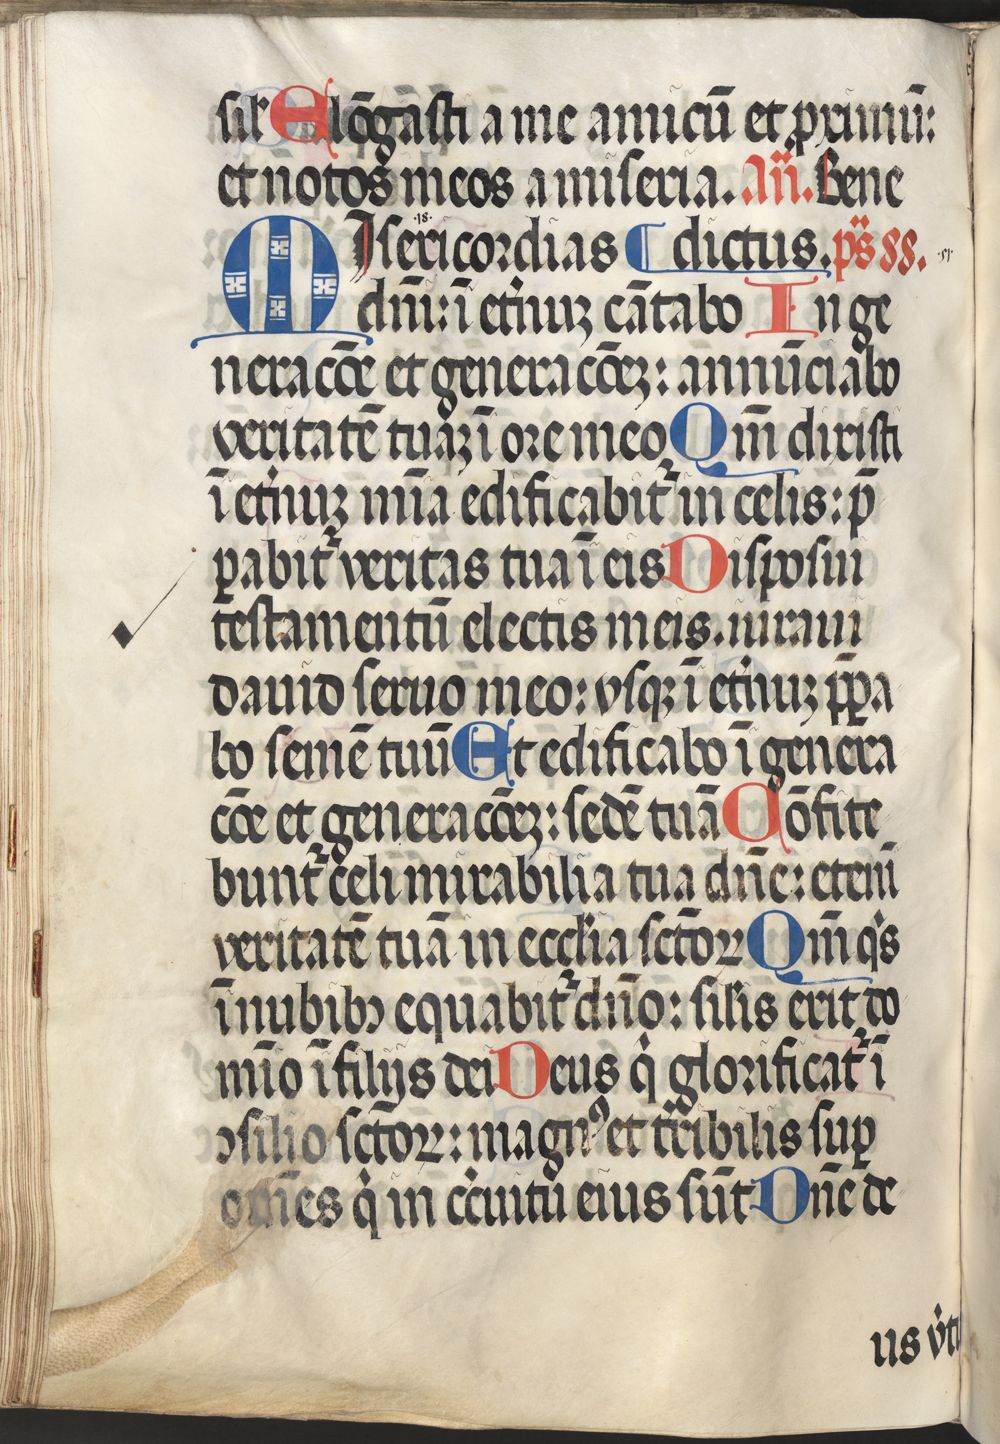 sil̄ Elōgasti a me amicū et ꝓximū:
et notos meos a miseria. Añ. Bene
.18. Misericordias dictus. ps̄ 88. .51.
dn̄i: ī et̉nuꝫ cātabo In ge
neracōe et generacōeꝫ: annūciabo
veritatē tuaꝫ ī ore meo Qm̄ dixisti
ī et̉nuꝫ mīa edificabit᷑ in celis: p̄
ꝑabit᷑ veritas tua ī eis Disposui
testamentū electis meis. iuraui
dauid seruo meo: vsqꝫ ī et̉nuꝫ p̄ꝑa
bo semē tuū Et edificabo ī genera
cōe et generacōeꝫ: sedē tuā Cōfite
bunt᷑ celi mirabilia tua dn̄e: eteni̅
veritatē tuā in eccl̄ia sctōꝝ Qm̄ qͥs
ī nubibꝫ equabit᷑ dn̄o: sil̄is erit do
mīo ī filijs dei Deus qͥ glorificat᷑ ī
ↄsilio sctōꝝ: magnꝰ et tr̄ibilis suꝑ
om̄es qͥ in cͥcuitu eius sūt Dn̄e de
us v̉t